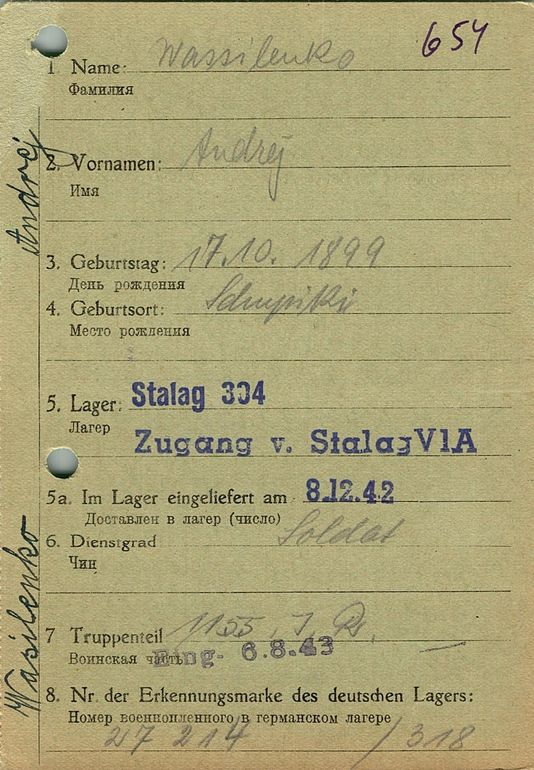 654
1. Name: Wassilenko
Фамилия
2. Vornamen: Andrej
Имя
3. Geburtstag: 17.10. 1899
День рождения
4. Geburtsort:
Место рождения
5. Lager: Stalag 304
Лагер
Zugang v. Stalag VIA
5a. Im Lager eingeliefert am 8.12.42
Доставлен в лагер (число)
6. Dienstgrad Soldat
Чин
7 Truppenteil 1155 J. R.
Воинская часть
Eing. 6.8.43
8. Nr. der Erkennungsmarke des deutschen Lagers:
Номер военнопленного в германском лагере
27 214 /318
Wasilenko Andrej